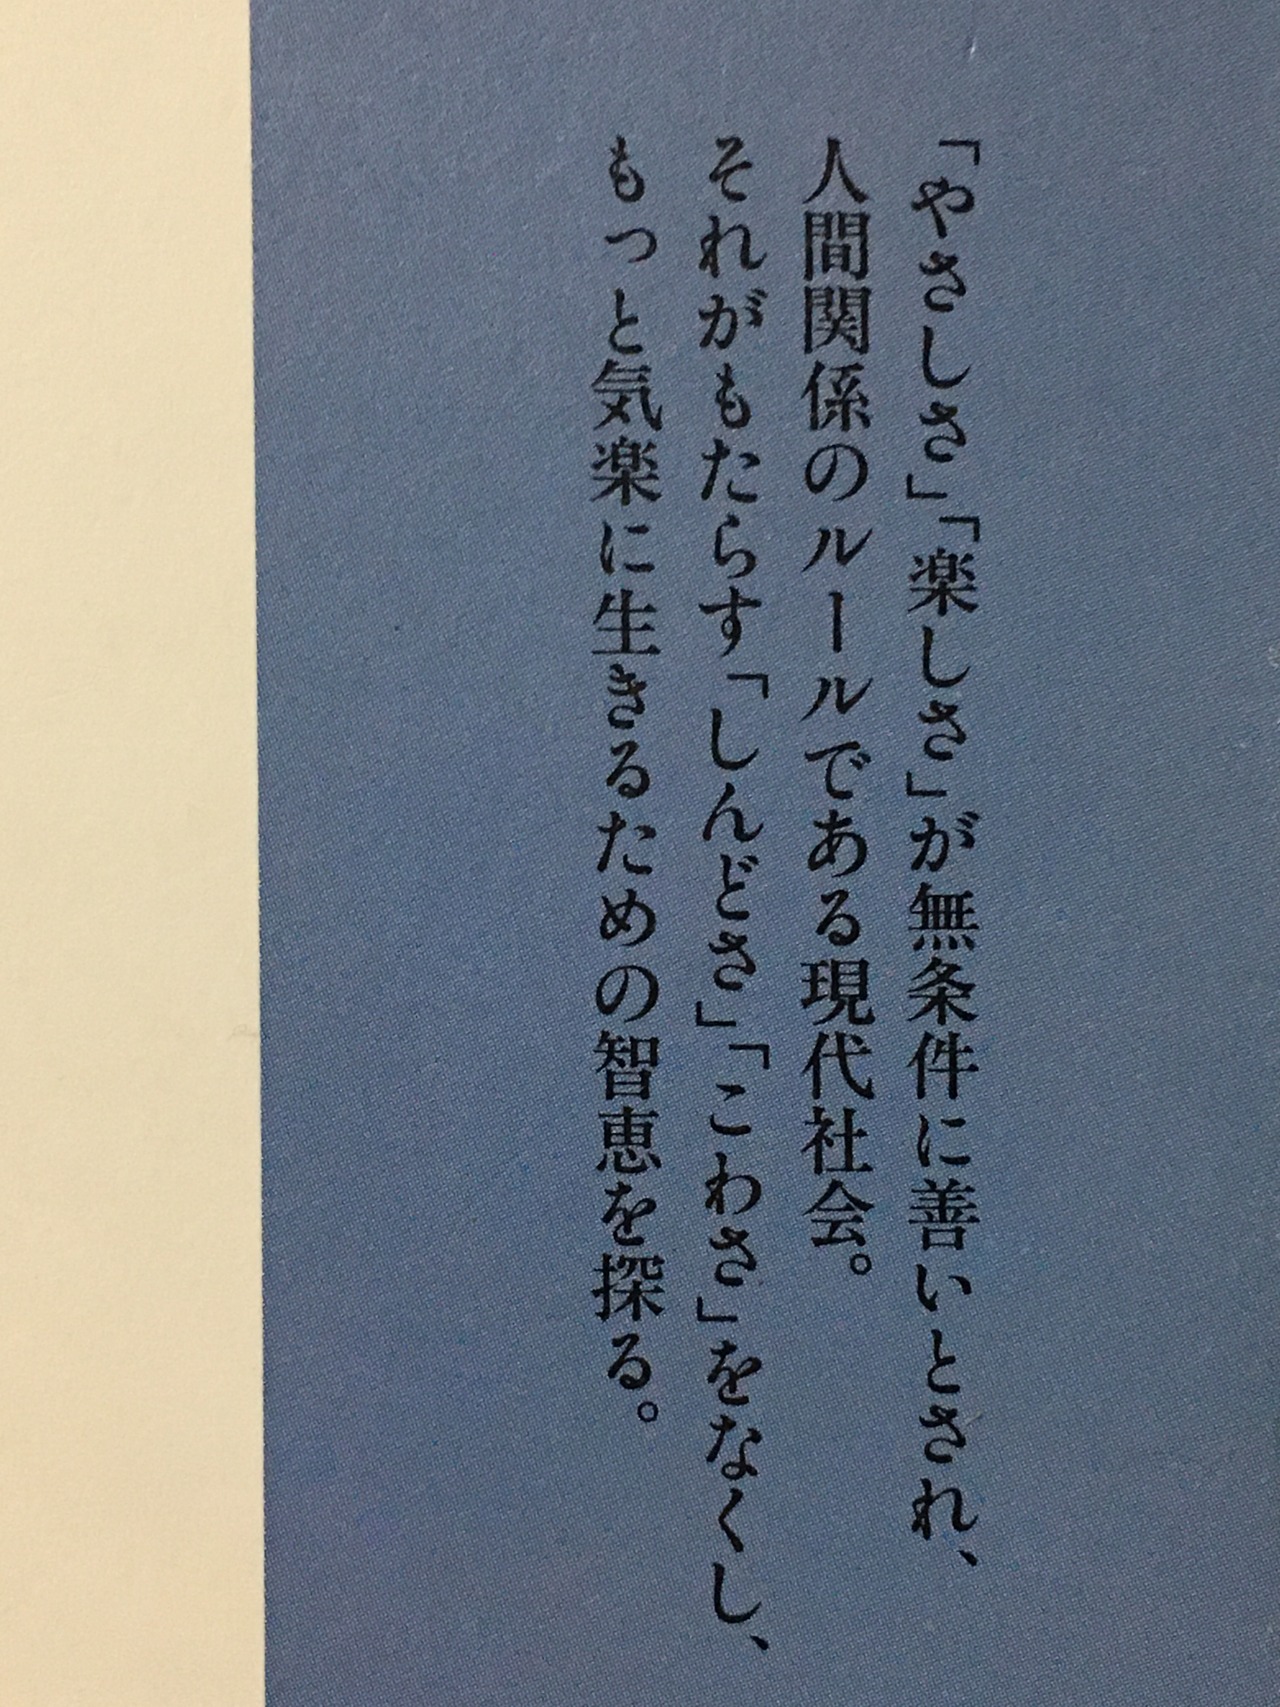 「やさしさ」「楽しさ」が無条件に善いとされ、
人間関係のルールである現代社会。
それがもたらす「しんどさ」「こわさ」をなくし、
もっと気楽に生きるための智恵を探る。